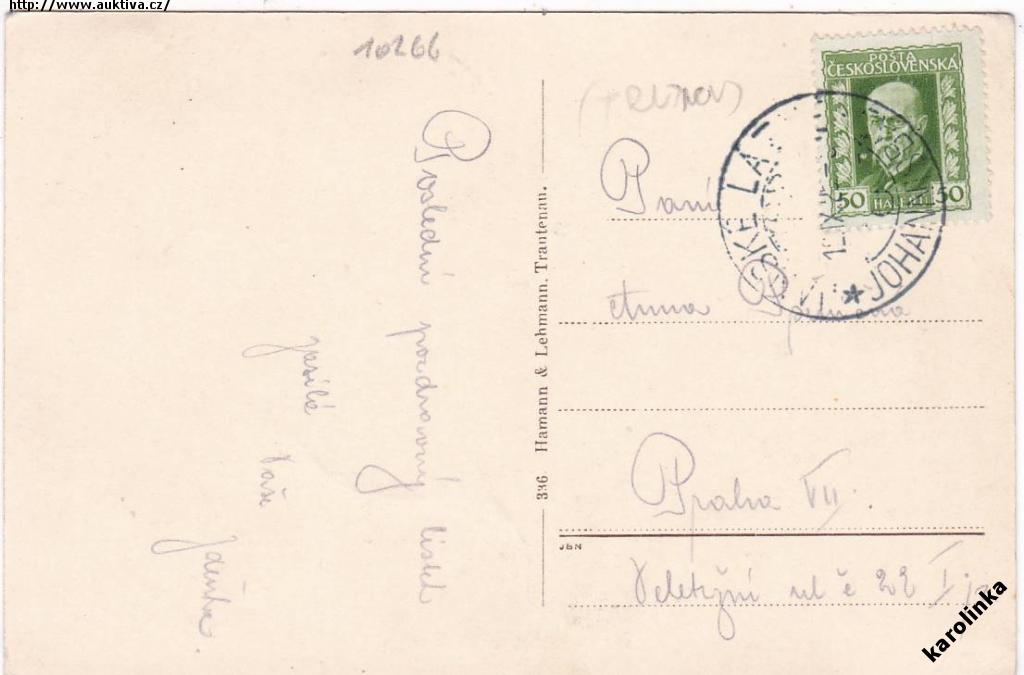 http://www.auktiva.cz/
10266
Poslední pozdravný lístek
posílá
Vaše
336 Hamann & Lehmann, Trautenau.
POŠTA
ČESKOSLOVENSKÁ
50 HALÉŘŮ 50
SKÉ LÁ
JOHAN
Paní
Anna
Praha VII.
JBN
Veletržní ul č 22 I
karolinka